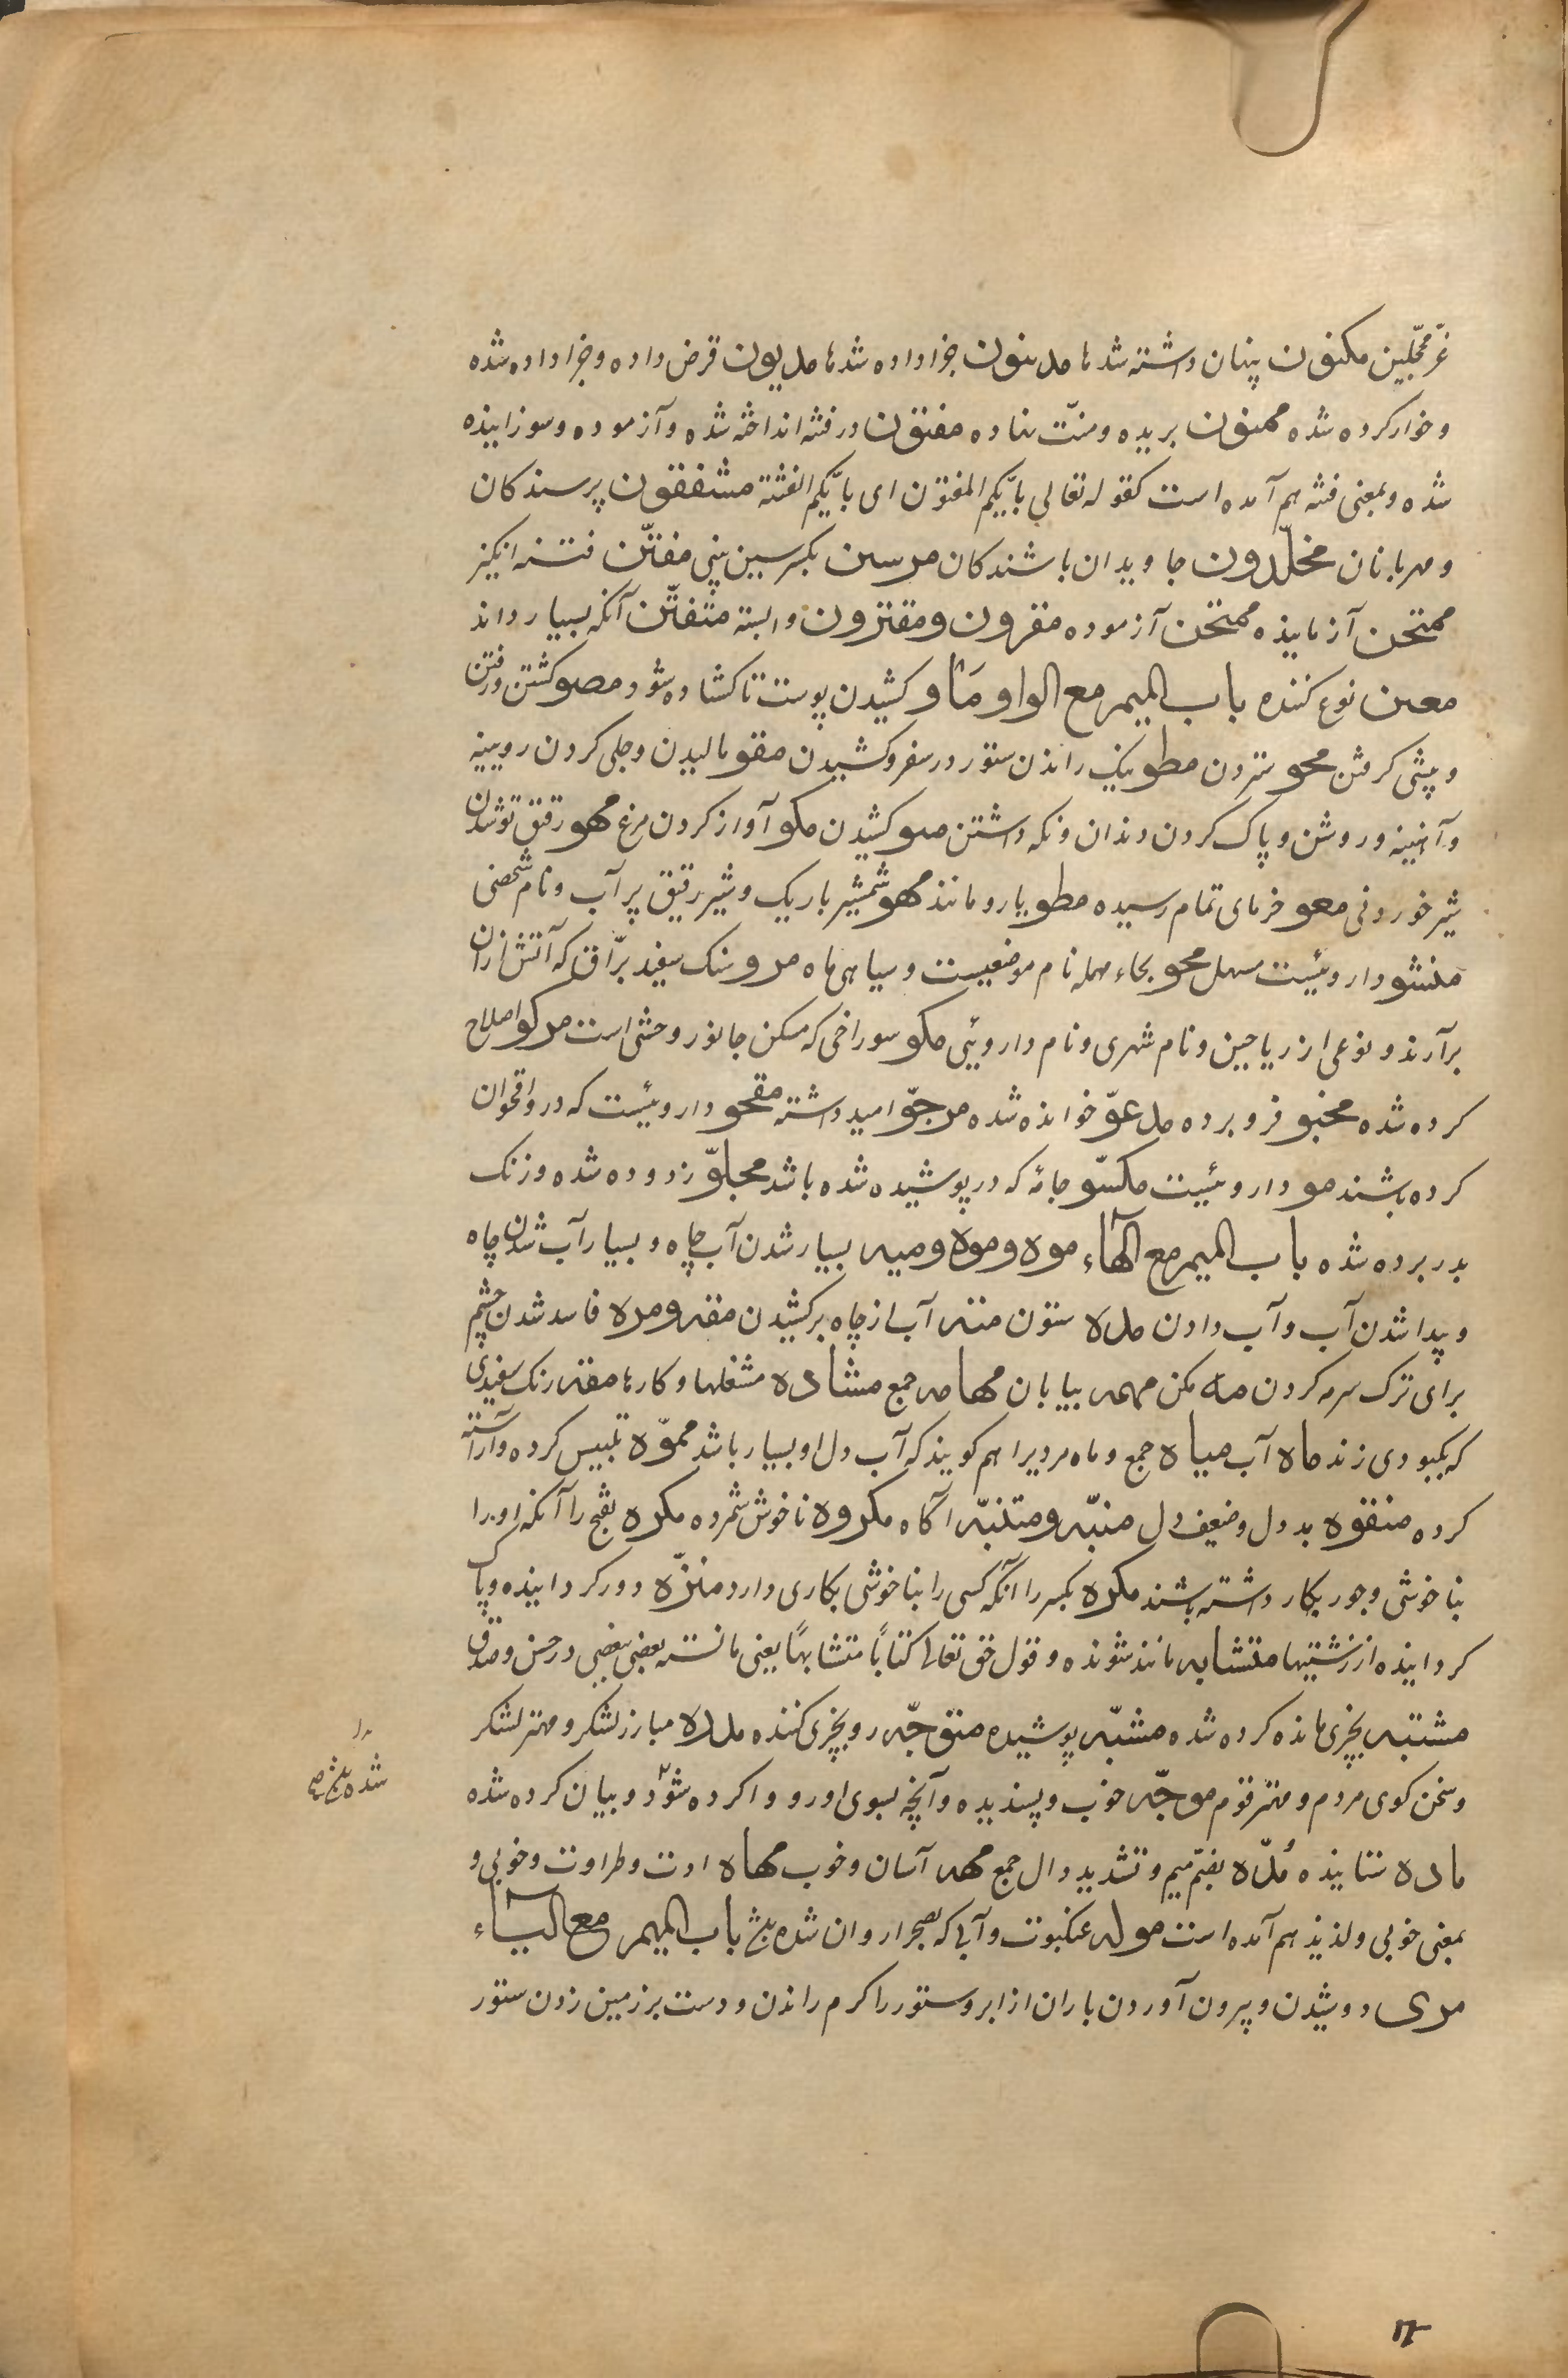 غرّ محجّلین مکنون پنهان داشته شدها مدینون جزا داده شدها مدیون قرض داده و جزا داده شده
و خوار کرده شده ممنون بریده و منّت نهاده مفتون در فتنه انداخته شده و آزموده و سوزانیده
شده و بمعنی فتنه هم آمده است کقوله تعالی بأیّکم المفتون ای بأیّکم الفتنة مشفقون پرسندکان
و مهربانان مخلّدون جاویدان باشندکان مرسن بکسر سین بینی مفتّن فتنه انکیز
ممتحن آزماینده ممتحن آزموده مقرون و مقترون وابسته متفنّن آنکه بسیار داند
معین نوع کننده باب المیم مع الواو مأو کشیدن پوست تا کشاده شود مصو کشتن و رفتن
و پیشی کرفتن محو ستردن مطو نیک راندن ستور در سفر و کشیدن مقو مالیدن و جلی کردن رویینه
و آهنینه و روشن و پاک کردن دندان و نکه داشتن مسو کشیدن مکو آواز کردن مرغ مهو رقیق شدن
شیر خوردنی معو خرمای تمام رسیده مطو یار و مانند مهو شمشیر باریک و شیر رقیق پر آب و نام شخصی
منشو داروئیست مسهل محو بحاء مهمله نام موضعیست و سیاهی ماه مرو سنک سفید برّاق که آتش ازان
برآرند و نوعی از ریاحین و نام شهری و نام داروئی مکو سوراخی که مسکن جانور وحشی است مرکو اصلاح
کرده شده مخبو فرو برده مدعوّ خوانده شده مرجوّ امید داشته مقحو داروئیست که درو اقحوان
کرده باشند مو داروئیست مکسوّ جامهٔ که در پوشیده شده باشد مجلوّ زدوده شده و زنک
بدر برده شده باب المیم مع الهآء موه و موه و میه بسیار شدن آب چاه و بسیار آب شدن چاه
و پیدا شدن آب و آب دادن مده ستون مته آب از چاه برکشیدن مقه و مره فاسد شدن چشم
برای ترک سرمه کردن مه مکن مهمه بیابان مهامه جمع مشاده مشغلها و کارها مقه رنک سفیدی
که بکبودی زند ماه آب میاه جمع و ماه مردیرا هم کویند که آب دل او بسیار باشد مموّه تلبیس کرده و آراسته
کرده منفوه بد دل و ضعیف دل منبّه و متنبّه آکاه مکروه ناخوش شمرده مکره بفتح را آنکه او را
بناخوشی و جور بکار داشته باشند مکره بکسر را آنکه کسی را بناخوشی بکاری دارد منزّه دور کردانیده و پاک
کردانیده از زشتیها متشابه مانند شونده و قول حق تعالی کتابًا متشابهًا یعنی مانسته بعضی ببعضی در حسن و صدق
مشتبه بچیزی مانده کرده شده مشبّه پوشیده متوجّه رو بچیزی کننده مدره مبارز لشکر و مهتر لشکر
و سخن کوی مردم و مهتر قوم موجّه خوب و پسندیده و آنچه بسوی او رو واکرده شود و بیان کرده شده
ماده ستاینده مُدّه بضمّ میم و تشدید دال جمع مهه آسان و خوب مهاه ادت و طراوت و خوبی و
بمعنی خوبی و لذیذ هم آمده است موله عنکبوت و آبی که بصحرا روان شده باب المیم مع الیآء
مری دوشیدن و بیرون آوردن باران از ابر و ستور را کرم راندن و دست بر زمین زدن ستور